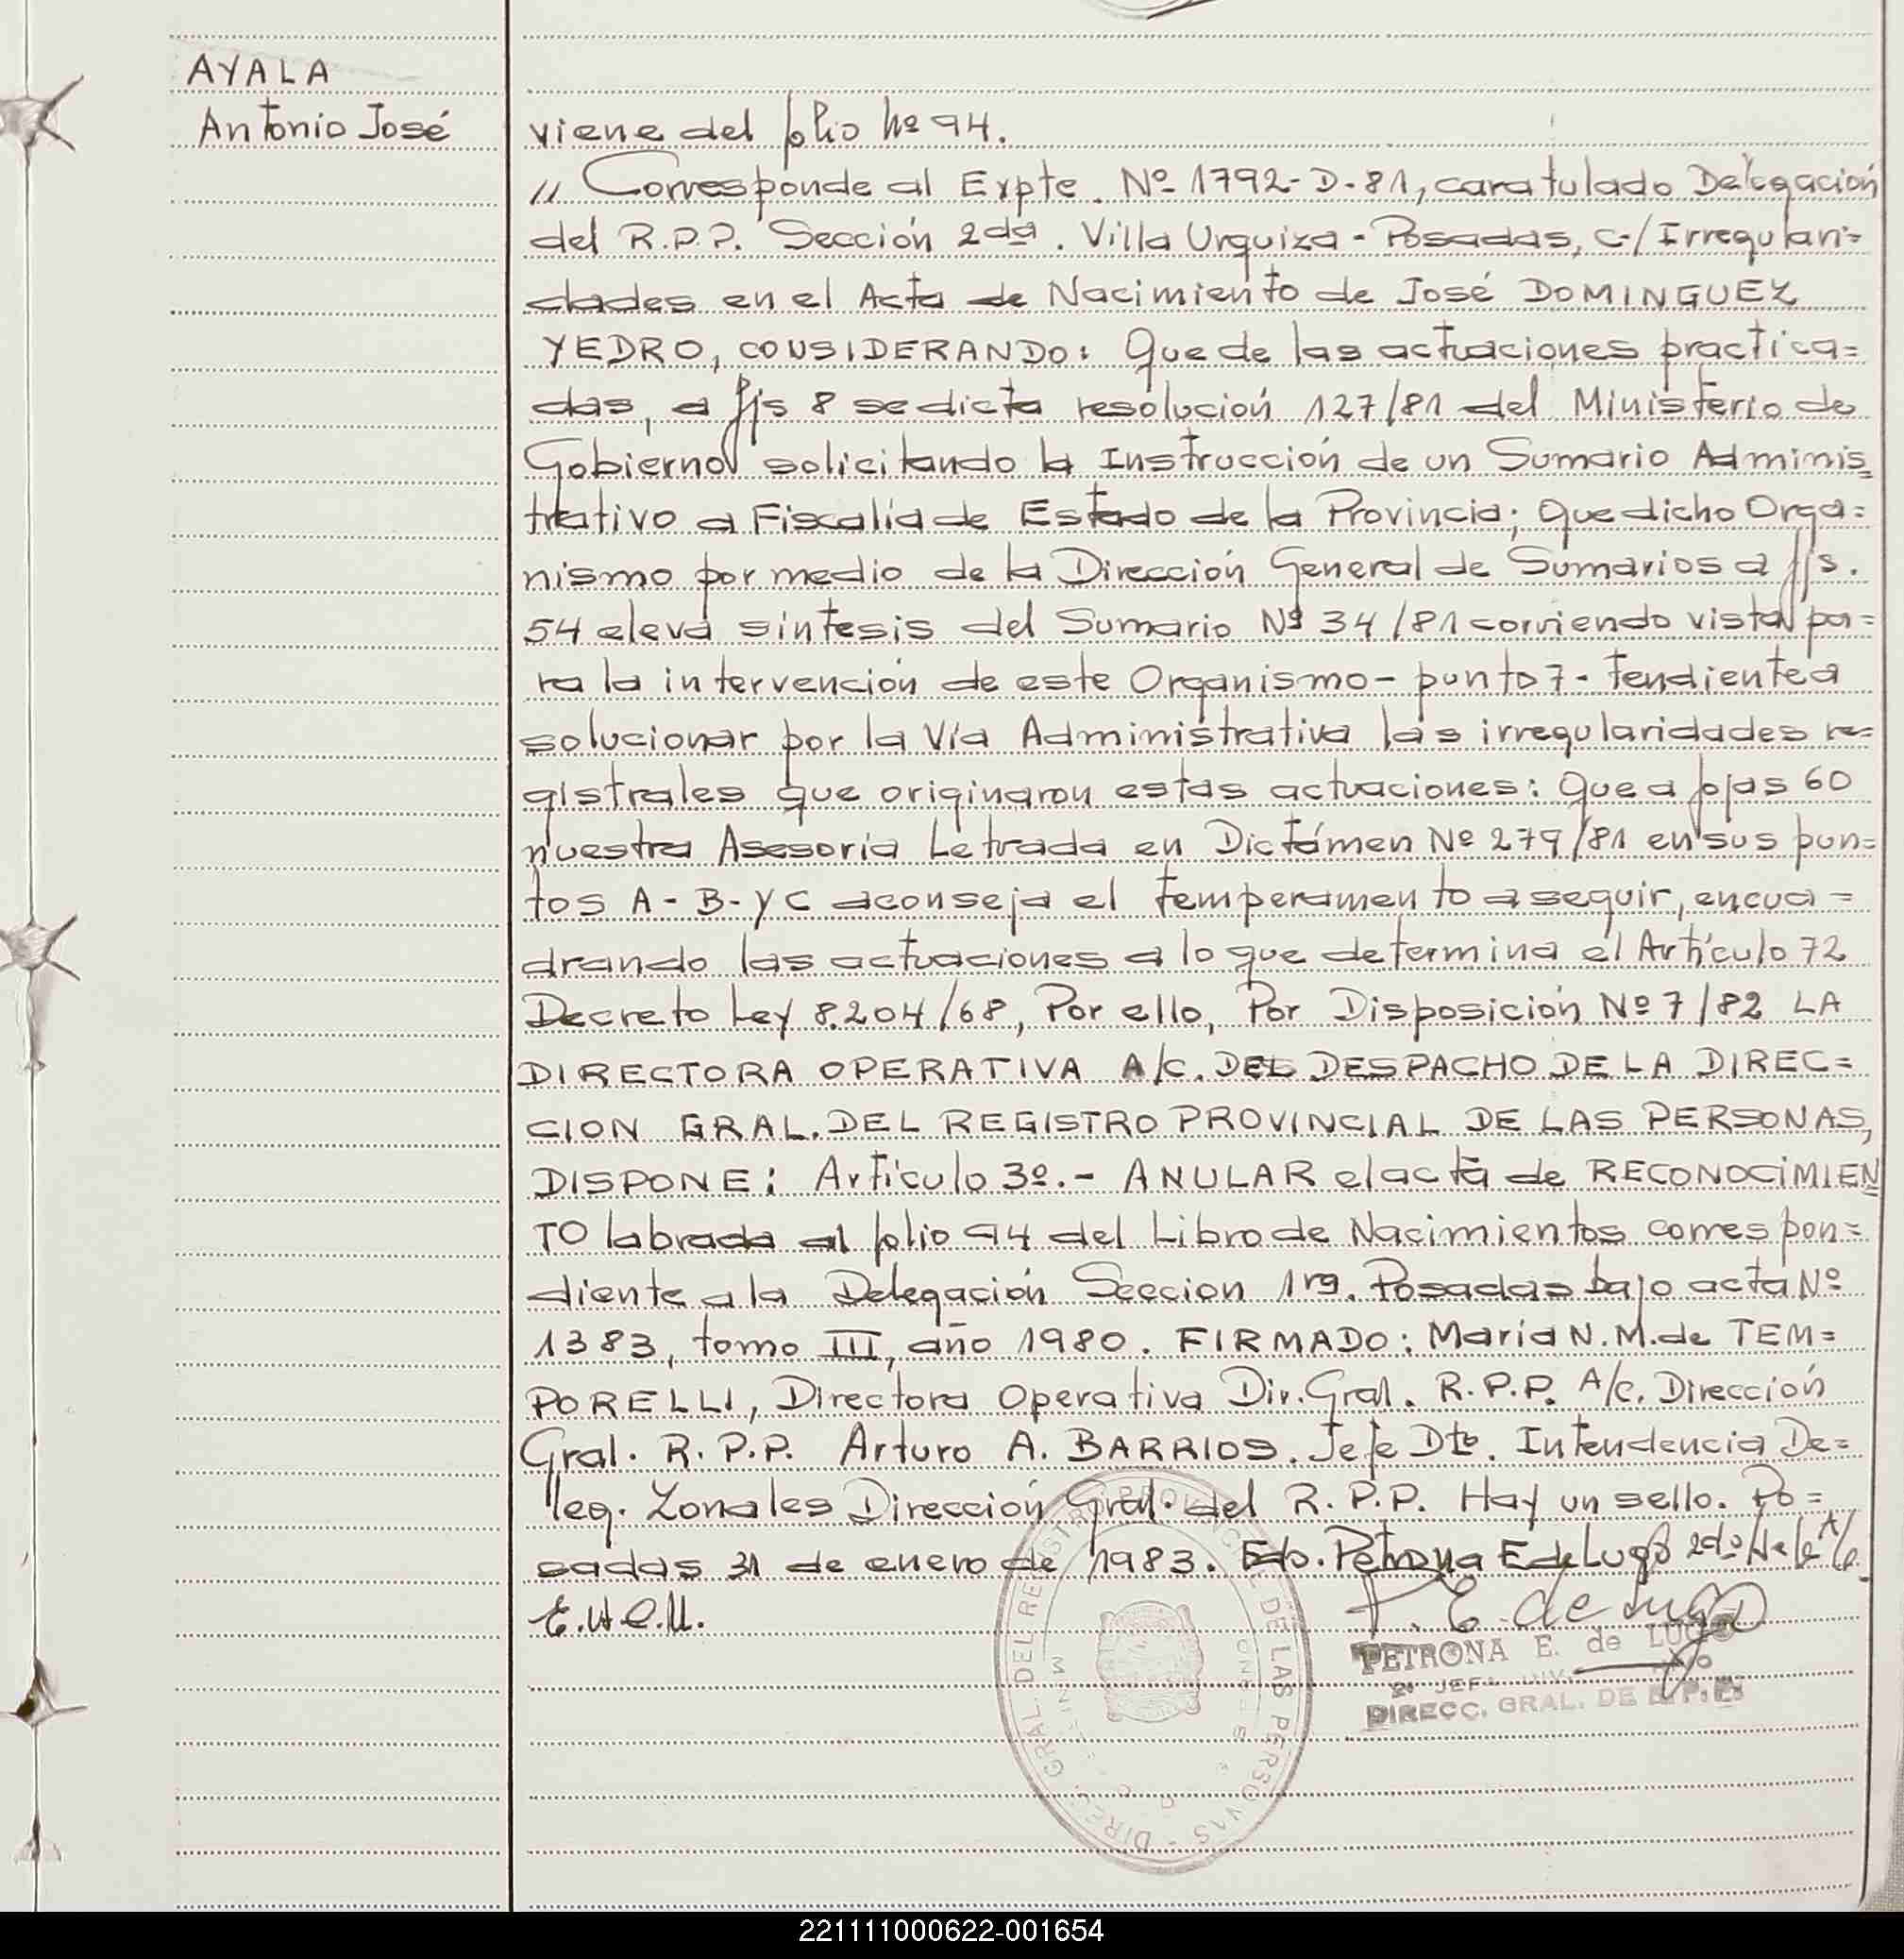 AYALA
Antonio José
viene del folio Nº 94.
// Corresponde al Expte. Nº 1792-D-81, caratulado Delegación
del R.P.P. Sección 2da. Villa Urquiza - Posadas, c/ Irregulari=
dades en el Acta de Nacimiento de José DOMINGUEZ
YEDRO, CONSIDERANDO: Que de las actuaciones practica=
das, a fjs 8 se dicta resolución 127/81 del Ministerio de
Gobierno solicitando la Instrucción de un Sumario Adminis=
trativo a Fiscalía de Estado de la Provincia; que dicho Orga=
nismo por medio de la Dirección General de Sumarios a fjs.
54 eleva síntesis del Sumario Nº 34/81 corriendo vista pa=
ra la intervención de este Organismo - punto 7 - tendiente a
solucionar por la Vía Administrativa las irregularidades re=
gistrales que originaron estas actuaciones: Que a fojas 60
nuestra Asesoria Letrada en Dictámen Nº 279/81 en sus pun=
tos A - B - y C aconseja el temperamento a seguir, encua=
drando las actuaciones a lo que determina el Artículo 72
Decreto Ley 8.204/68, Por ello, Por Disposición Nº 7/82 LA
DIRECTORA OPERATIVA A/C. DEL DESPACHO DE LA DIREC=
CION GRAL. DEL REGISTRO PROVINCIAL DE LAS PERSONAS,
DISPONE: Artículo 3º.- ANULAR el acta de RECONOCIMIEN=
TO labrada al folio 94 del Libro de Nacimientos correspon=
diente a la Delegación Seccion 1ra. Posadas bajo acta Nº
1383, tomo III, año 1980. FIRMADO: María N. M. de TEM=
PORELLI, Directora Operativa Dir. Gral. R.P.P. A/c. Dirección
Gral. R.P.P. Arturo A. BARRIOS. Jefe Dto. Intendencia De=
leg. Zonales Dirección Gral. del R.P.P. Hay un sello. Po=
sadas 31 de enero de 1983. Fdo. Petrona E de Lugo 2do
P. E. de Lugo
PETRONA E. de LUGO
2º JEFE
DIRECC. GRAL. DE R.P.P.
DIREC. GRAL. DEL REGISTRO PROVINCIAL DE LAS PERSONAS
221111000622-001654